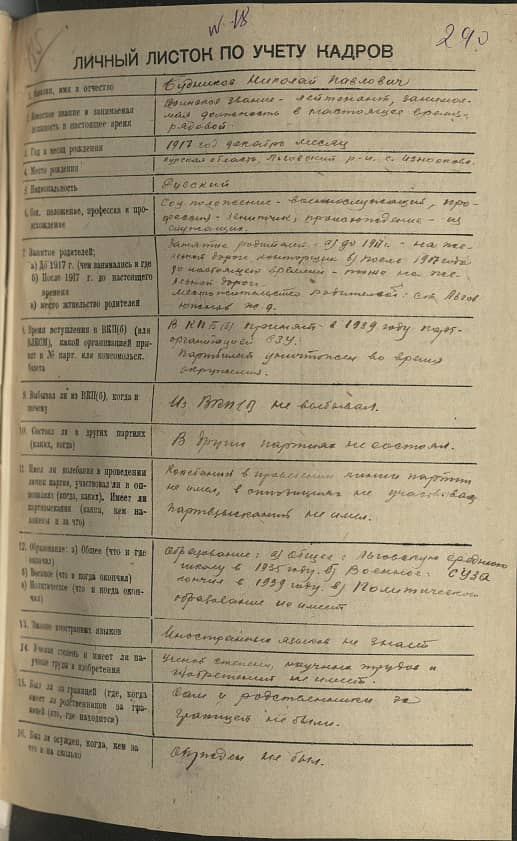 № 18
290
ЛИЧНЫЙ ЛИСТОК ПО УЧЕТУ КАДРОВ
1. Фамилия, имя и отчество
Будников Николай Павлович
2. Воинское звание и занимаемая
должность в настоящее время
Воинское звание - лейтенант, занимае-
мая должность в настоящее время -
рядовой.
3. Год и месяц рождения
1917 год декабрь месяц
4. Место рождения
Курская область, Льговский р-н, с.
5. Национальность
Русский
6. Соц. положение, профессия и про-
исхождение
Соц. положение - военнослужащий, про-
фессия - зенитчик; происхождение - из
служащих.
7. Занятие родителей:
а) До 1917 г. (чем занимались и где
б) После 1917 г. до настоящего
времени
в) место жительство родителей
Занятие родителей: а) до 1917 г. - на же-
лезной дороге б) после 1917 года
до настоящего времени - тоже на же-
лезной дороге.
Местожительство родителей: ст. Льгов
ж.д.
8. Время вступления в ВКП(б) (или
ВЛКСМ), какой организацией при-
нят и № карт. или комсомольск.
билета
В ВКП(б) принят в 1939 году парт-
организацией СЗУ.
Партбилет уничтожен во время
окружения.
9. Выбывал ли из ВКП(б), когда и
почему
Из ВКП(б) не выбывал.
10. Состоял ли в других партиях
(каких, когда)
В других партиях не состоял.
11. Имел ли колебания в проведении
линии партии, участвовал ли в оп-
позициях (когда, каких). Имеет ли
партвзыскания (какия, кем на-
ложены и за что)
Колебания в проведении линии партии
не имел, в оппозициях не участвовал
Партвзыскания не имел.
12. Образование: а) Общее (что и где
окончил)
б) Военное (что и когда окончил)
в) Политическое (что и когда окон-
чил)
Образование: а) Общее: Льговскую среднюю
школу в 1935 году. б) Военное: СУЗА
кончил в 1939 году. в) Политического
образования не имеет
13. Знание иностранных языков
Иностранных языков не знает
14. Ученая степень и имеет ли на-
учные труды и изобретения
Ученой степени, научных трудов и
изобретений не имеет.
15. Был ли за границей (где, когда
имеет ли родственников за гра-
ницей (кто, где находится)
Сам и родственники за
границей не были.
16. Был ли осужден, когда, кем за
что и на сколько
Осужден не был.